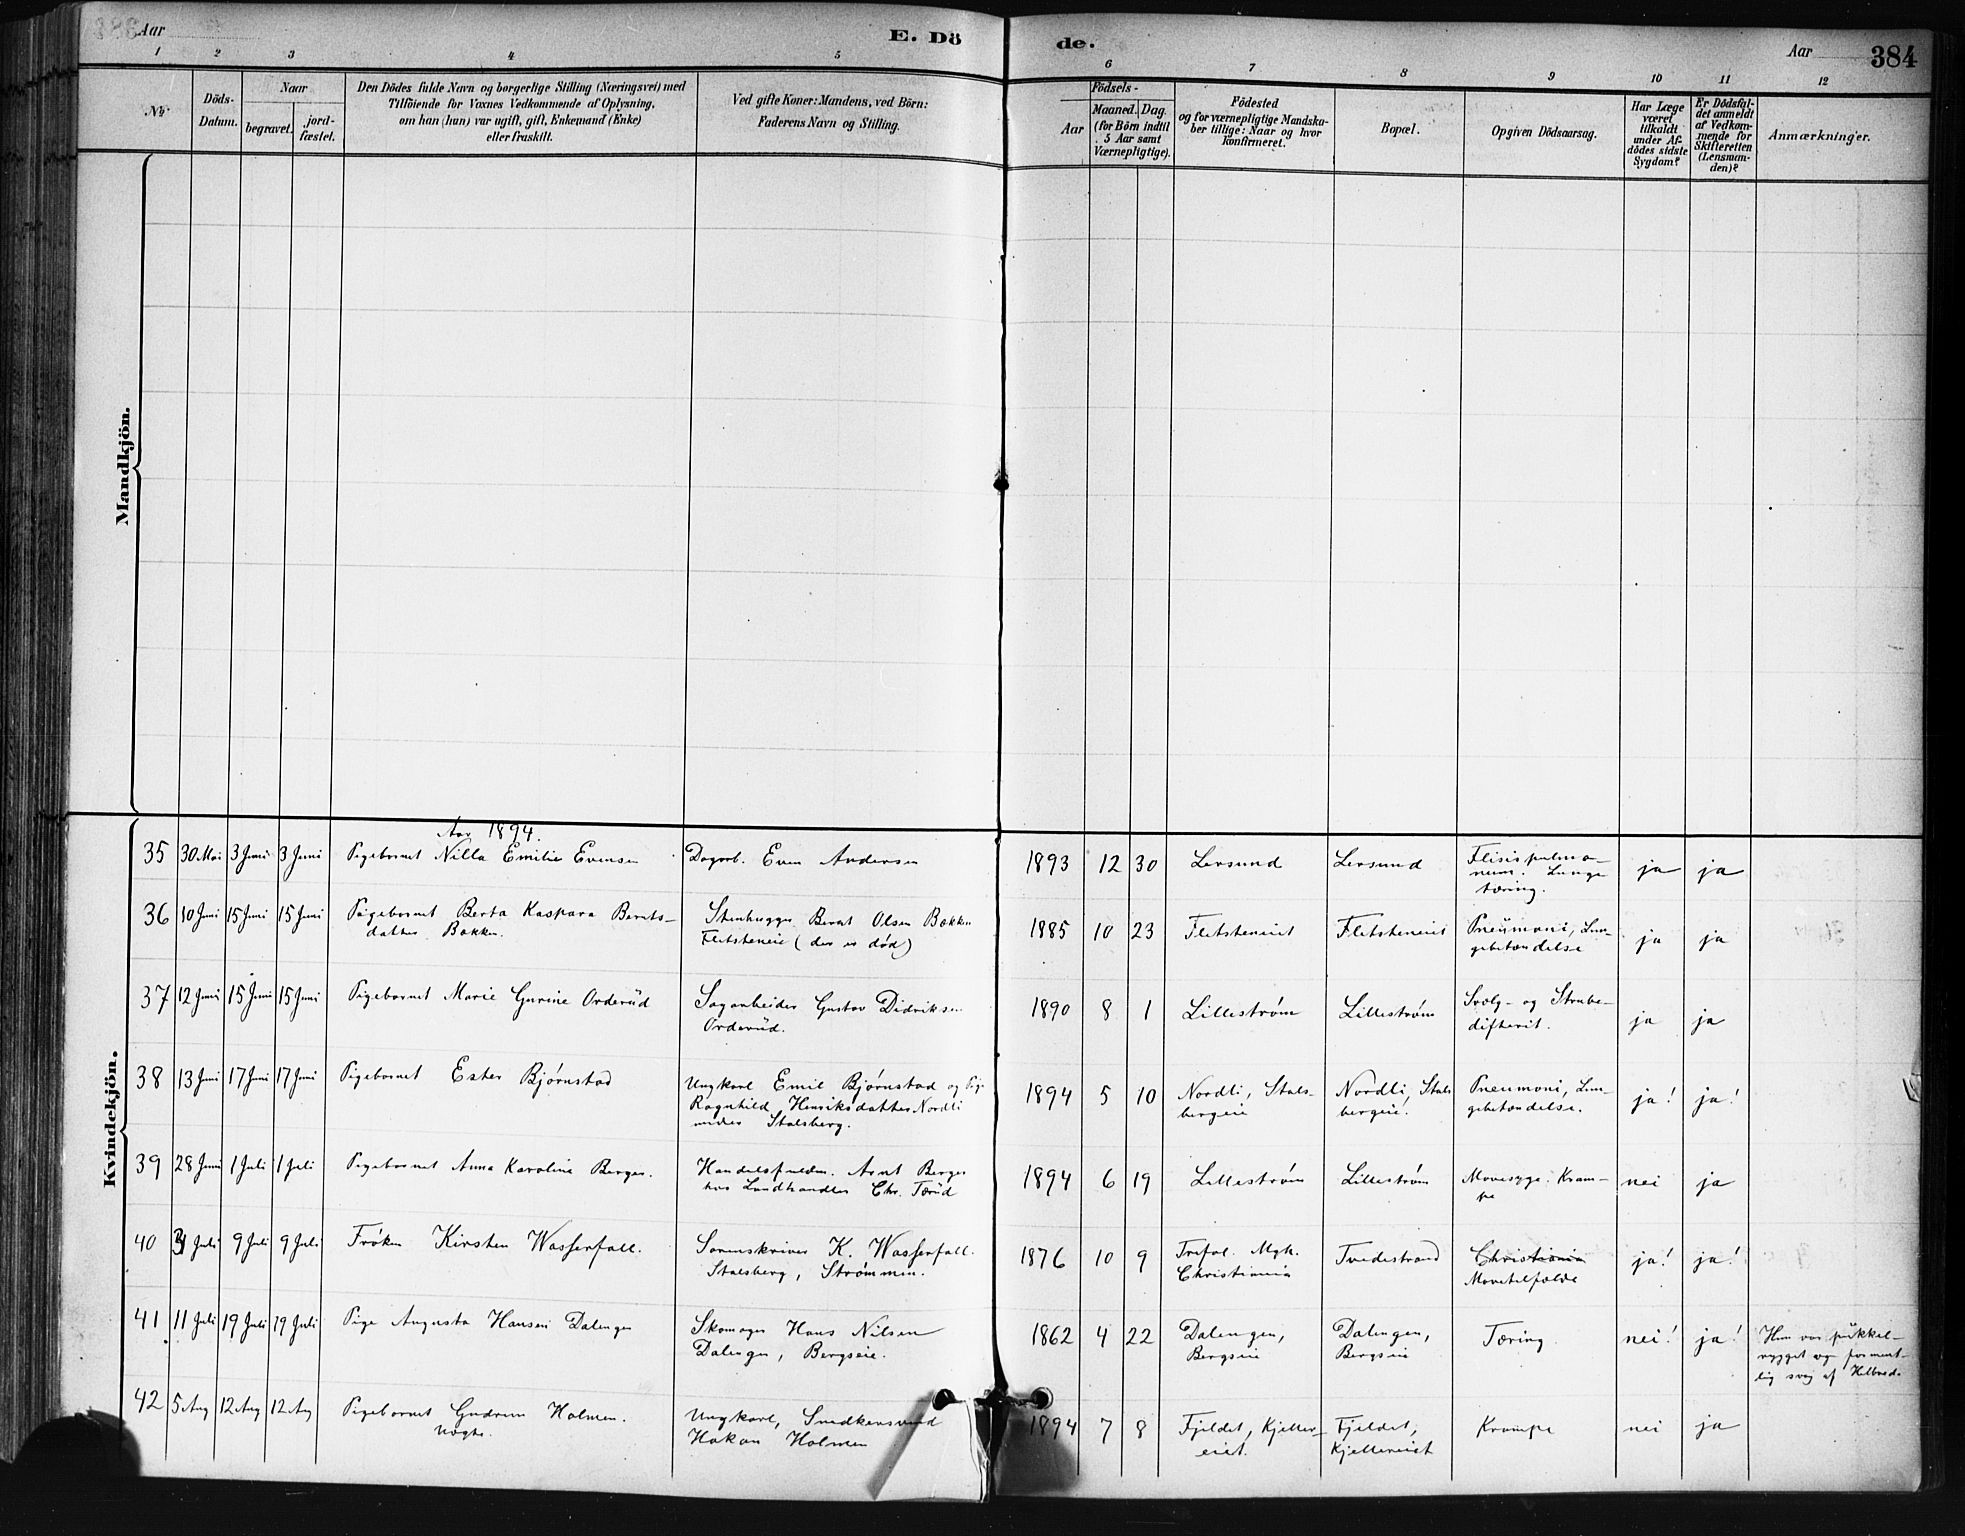 Aar
E. Dö
de.
Aar
384
1 2 3 4 5 6 7 8 9 10 11 12
No.
Döds-
Datum.
Naar
begravet.
jord-
fæstet.
Den Dödes fulde Navn og borgerlige Stilling (Næringsvei) med
Tilföiende for Voxnes Vedkommende af Oplysning,
om han (hun) var ugift, gift, Enkemand (Enke)
eller fraskilt.
Ved gifte Koner: Mandens, ved Börn:
Faderens Navn og Stilling.
Födsels-
Aar
Maaned. Dag.
(for Börn indtil
5 Aar samt
Værnepligtige).
Födested
og for værnepligtige Mandska-
ber tillige: Naar og hvor
konfirmeret.
Bopæl.
Opgiven Dödsaarsag.
Har Læge
været
tilkaldt
under Af-
dödes sidste
Sygdom?
Er Dödsfal-
det anmeldt
af Vedkom-
mende for
Skifteretten
(Lensman-
den)?
Anmærkninger.
Mandkjön.
Kvindekjön.
Aar 1894.
35 30 Mai 3 Juni 3 Juni Pigebarnet Nilla Emilie Evensen Dagarb. Even Andersen 1893 12 30 Lersund Lersund Ftisis pulmo-
num. Lunge
tæring. ja ja
36 10 Juni 15 Juni 15 Juni Pigebarnet Berta Kaspara Bernts-
datter Bakken. Stenhugger Bernt Olsen Bakken
Fletsteneie (der er død) 1885 10 23 Fletsteneiet Fletsteneiet Pneumoni, Lun-
gebetændelse ja ja
37 12 Juni 15 Juni 15 Juni Pigebarnet Marie Gurine Orderud Sagarbeider Gustav Didriksen
Orderud. 1890 8 1 Lillestrøm Lillestrøm Svælg- og Strube-
difterit. ja ja
38 13 Juni 17 Juni 17 Juni Pigebarnet Ester Bjørnstad Ungkarl Emil Bjørnstad og Pige
Ragnhild Henriksdatter Nordli
under Stalsberg. 1894 5 10 Nordli, Stals-
bergeie Nordli, Stals
bergeie. Pneumoni, Lun-
gebetændelse. ja! ja!
39 28 Juni 1 Juli 1 Juli Pigebarnet Anna Karoline Berger. Handelsfuldm. Arnt Berger
hos Landhandler Chr. Tærud 1894 6 19 Lillestrøm Lillestrøm Mavesyge. Kram-
pe nei ja
40 Juli 9 Juli 9 Juli Frøken Kirsten Wasserfall. Sorenskriver K. Wasserfall.
Stalsberg, Strømmen. 1876 10 9 Trefol. Mgh.
Christiania Tvedestrand Christiania
Mavetilfælde ja! ja!
41 11 Juli 19 Juli 19 Juli Pige Augusta Hansen Dalengen Skomager Hans Nilsen
Dalengen, Bergseie. 1862 4 22 Dalengen,
Bergseie Dalengen,
Bergseie Tæring nei! ja! Hun var pukkel-
rygget og forment-
lig svag af Helbred.
42 5 Aug 12 Aug 12 Aug Pigebarnet Gudrun Holmen.
uægte. Ungkarl, Snedkersvend
Hakon Holmen 1894 7 8 Fjeldet, Kjeller-
eiet. Fjeldet,
Kjellereiet Krampe nei ja